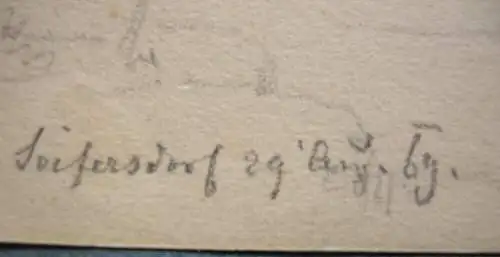 Seifersdorf 29' Aug. 69.